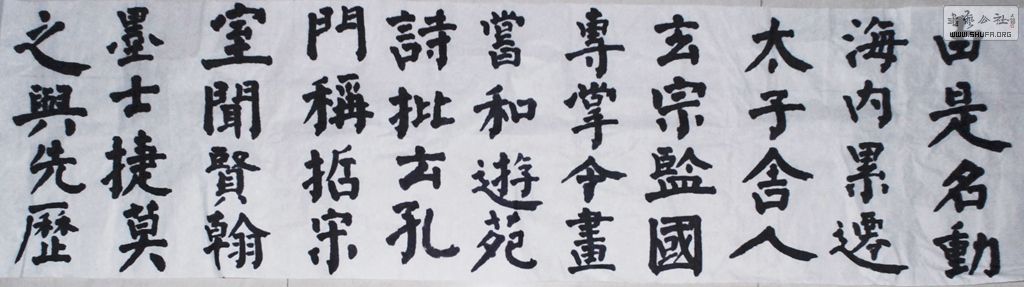 由是名動
海内累遷
太子舍人
玄宗監國
專掌令畫
嘗和遊苑
詩批云孔
門稱哲宋
室聞賢翰
墨士捷莫
之與先歷
WWW.SHUFA.ORG